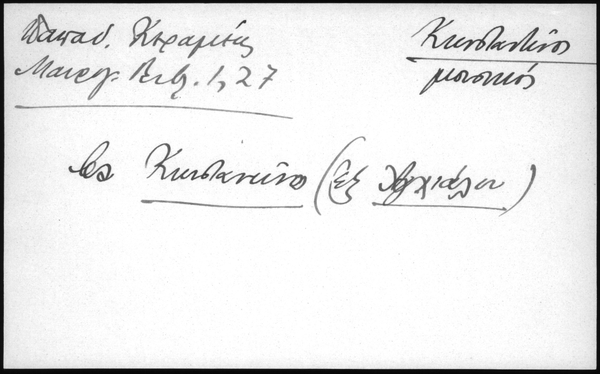 Παπαδ. Κεραμεύς
Μαυρογ. Βιβ. 1, 27
Κωνσταντῖνος
μουσικός
Κωνσταντῖνος (ἐξ Ἀγχιάλου)